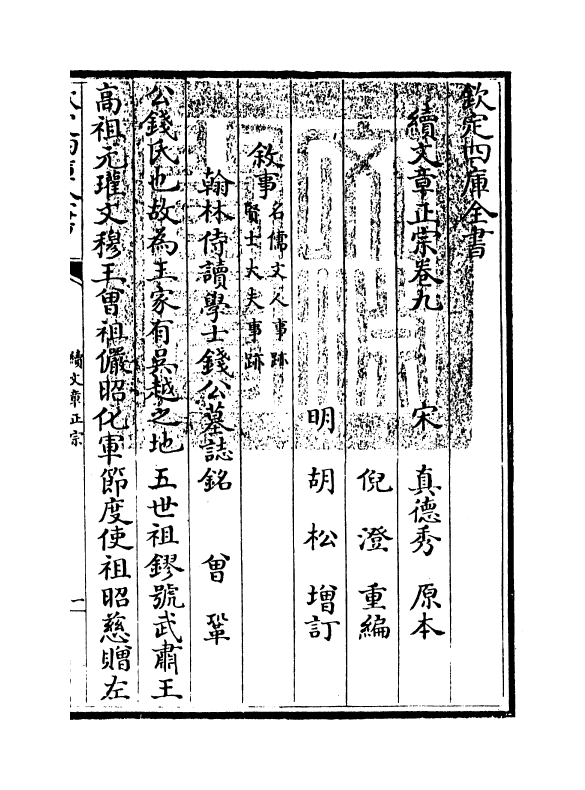 欽定四庫全書
續文章正宗卷九
宋 真德秀 原本
倪澄 重編
明 胡松 增訂
敘事
名儒文人事跡
賢士大夫事跡
翰林侍讀學士錢公墓誌銘 曾鞏
公錢氏也故為王家有吳越之地五世祖鏐號武肅王
高祖元瓘文穆王曾祖儼昭化軍節度使祖昭慈贈左
續文章正宗
一